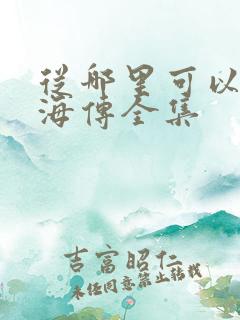 從哪里可以
海傳全集
吉富昭仁
未经同意禁止转载